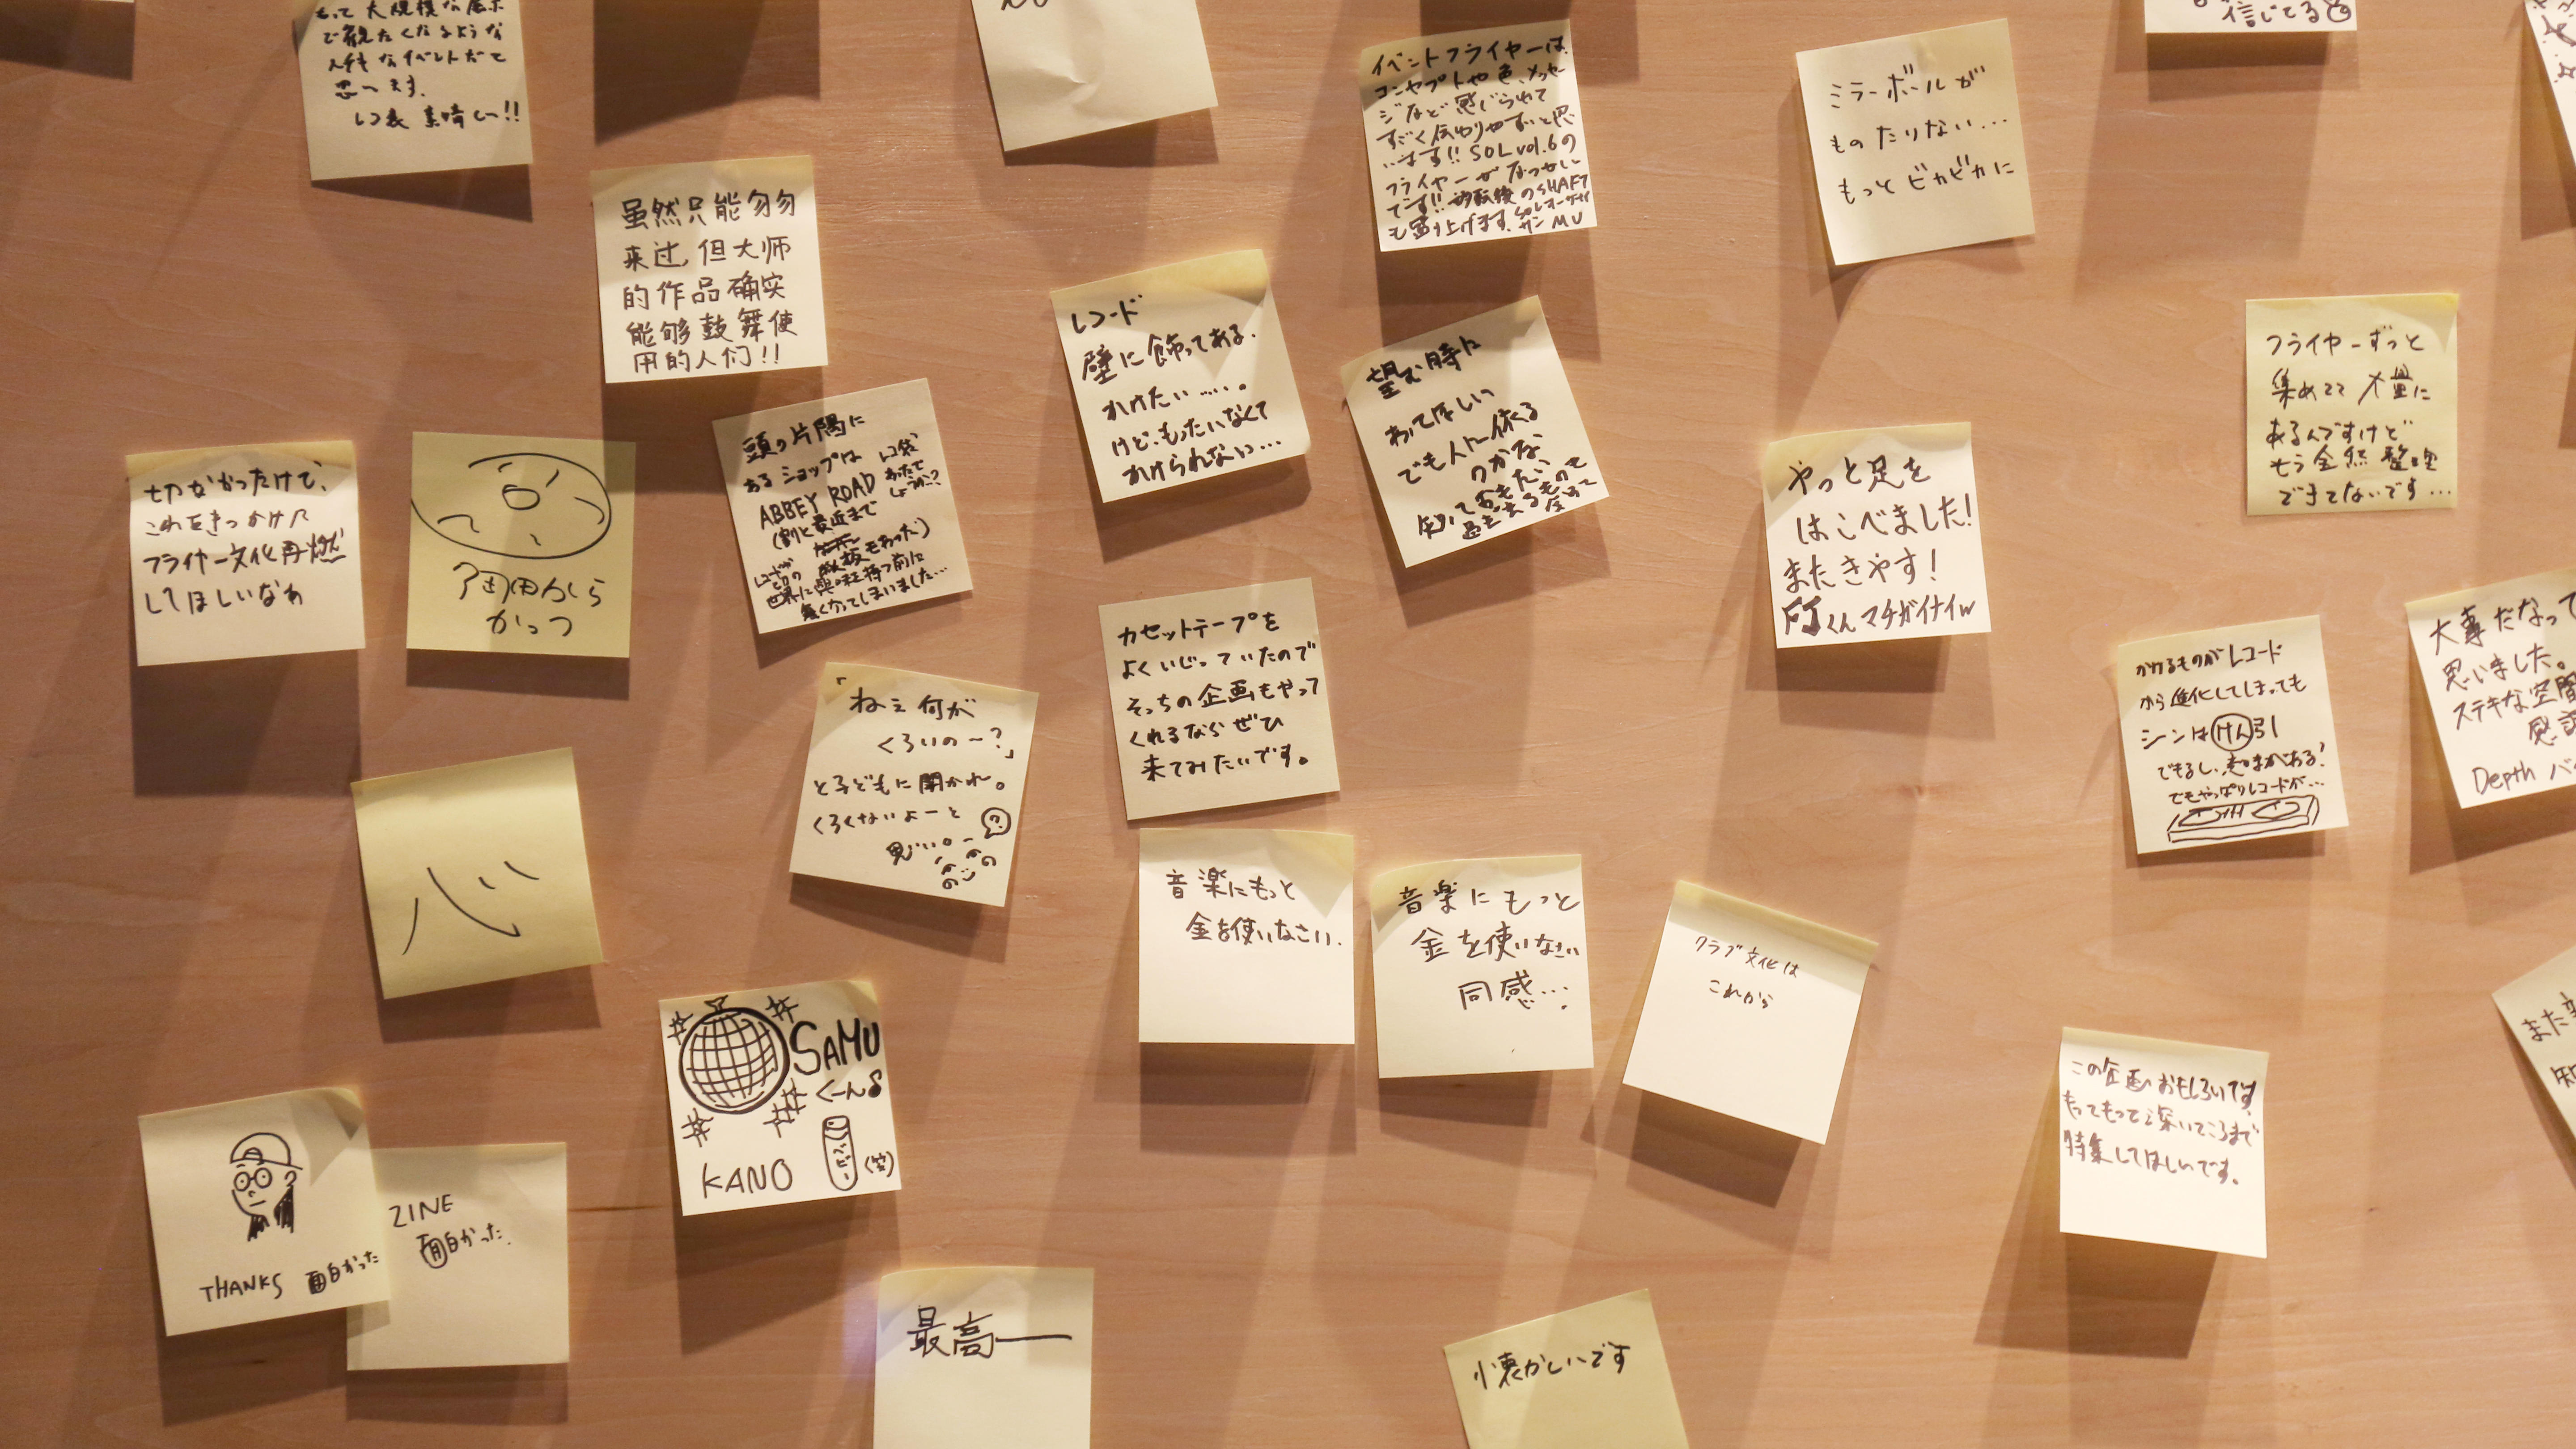 で観たくなるような
思います。
素晴しい!!
信じてる
イベントフライヤーは
コンセプトや色、メッセー
ジなど感じられて
すごく伝わりやすいと思
います!! SOL vol.6の
フライヤーがなつかしい
です!! 移転後のSHAFT
も盛り上げます。
MU
ミラーボールが
ものたりない...
もっとビカビカに
虽然只能匆匆
来过,但大师
的作品确实
能够鼓舞使
用的人们!!
レコード
壁に飾ってある.
かけたい……。
けど、もったいなくて
かけられない...
望む時に
わってほしい
でも人に依る
のかな、
フライヤーずっと
集めてて大量に
あるんですけど
もう全然整理
できてないです...
頭の片隅に
あるショップは
レコ袋
あたで
しょうか?
ABBEY ROAD
(割と最近まで
看板もあった)
世界に興味持つ前に
無くなってしまいました...
切なかったけど、
これをきっかけに
フライヤー文化再燃
してほしいなぁ
かっつ
やっと足を
はこべました!
またきやす!
FJくんマチガイナイw
カセットテープを
よくいじっていたので
そっちの企画もやって
くれるならぜひ
来てみたいです。
かけるものがレコード
から進化してしまっても
シンはけん引
できるし、意味がある!
でもやっぱりレコードが...
大事だなって
思いました。
ステキな空間
Depth
「ねぇ何が
くろいのー?」
と子どもに聞かれ。
くろくないよーと
?
心
音楽にもっと
金を使いなさい.
音楽にもっと
金を使いなさい
同感...
クラブ文化は
これから
SAMU
くーん
KANO
(笑)
この企画おもしろいです。
もってもって深いところまで
特集してほしいです。
また
THANKS 面白かった
ZINE
面白かった.
最高ー
懐かしいです